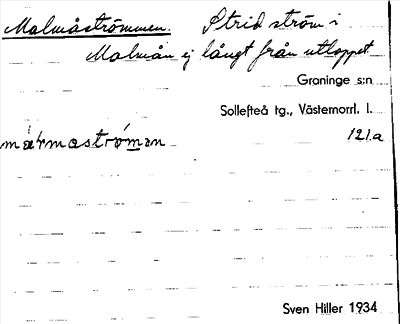 Malmåströmmen. Strid ström i
Malmån ej långt från utloppet.
Graninge s:n
Sollefteå tg., Västernorrl. l.
121.a
Sven Hiller 1934